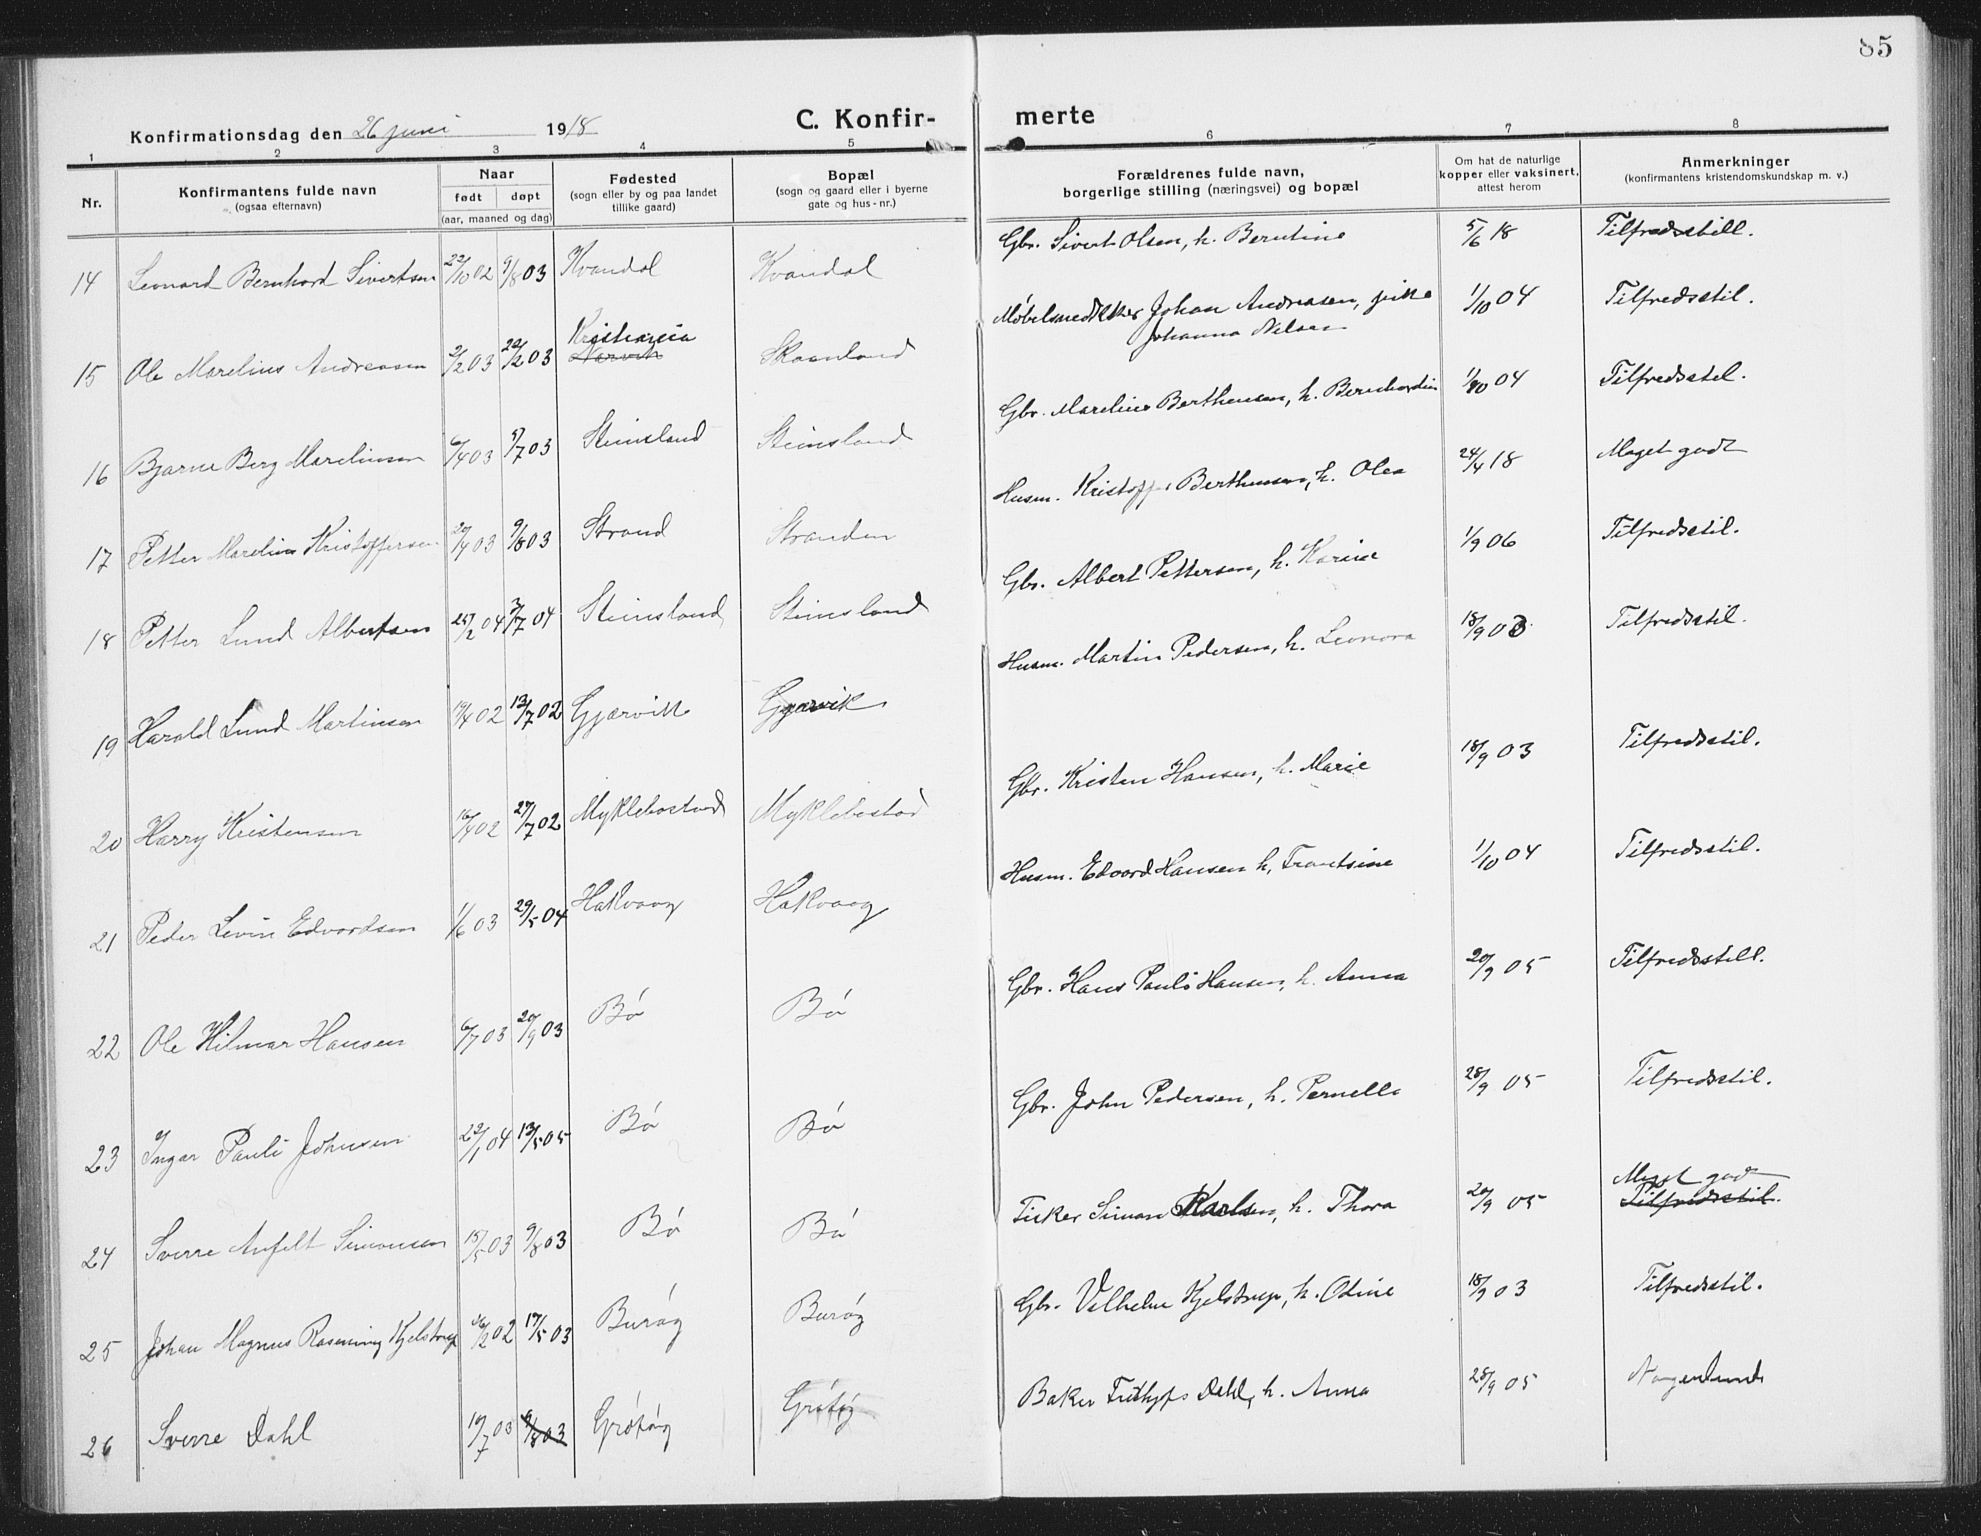 85
Konfirmationsdag den 26 juni 1918
C. Konfir-merte
1 2 3 4 5 6 7 8
Nr.
Konfirmantens fulde navn
(ogsaa efternavn)
Naar
født døpt
(aar, maaned og dag)
Fødested
(sogn eller by og paa landet
tillike gaard)
Bopæl
(sogn og gaard eller i byerne
gate og hus-nr.)
Forældrenes fulde navn,
borgerlige stilling (næringsvei) og bopæl
Om hat de naturlige
kopper eller vaksinert,
attest herom
Anmerkninger
(konfirmantens kristendomskundskap m. v.)
14 Leonard Bernhard Sivertsen 22/10 02 9/8 03 Kvandal Kvandal Gbr. Sivert Olsen, h. Berntine 5/6 18 Tilfredsstill.
15 Ole Marelius Andreasen 2/2 03 22/2 03 Kristiania Narvik Skaanland Møbelsnedkker Johan Andreasen, pike 1/10 04 Tilfredsstil.
Johanna Nilsen
16 Bjarne Berg Mareliussen 6/4 03 5/7 03 Steinsland Steinsland Gbr. Marelius Berthensen, h. Bernhardin 1/10 04 Tilfredsstil.
17 Petter Marelius Kristoffersen 20/4 03 9/8 03 Strand Stranden Husm. Kristoffer Berthensen, h. Olea 24/4 18 Maget godt
18 Petter Lund Albertsen 25/2 04 3/7 04 Steinsland Steinsland Gbr. Albert Pettersen, h. Karine 1/9 06 Tilfredsstil.
19 Harald Lund Martinsen 19/4 02 13/7 02 Gjærvik Gjærvik Husm. Martin Pedersen, h. Leonora 18/9 03 Tilfredsstil.
20 Harry Kristensen 16/4 02 27/7 02 Myklebostad Myklebostad Gbr. Kristen Hansen, h. Marie 18/9 03 Tilfredsstil.
21 Peder Levin Edvardsen 1/6 03 29/5 04 Hakvaag Hakvaag Husm. Edvard Hansen h. Frantsine 1/10 04 Tilfredsstil.
22 Ole Hilmar Hansen 6/7 03 20/9 03 Bø Bø Gbr. Hans Pauli Hansen, h. Anna 20/9 05 Tilfredsstill.
23 Ingar Pauli Johnsen 22/1 04 13/5 05 Bø Bø Gbr. John Pedersen, h. Pernella 28/9 05 Tilfredsstil.
24 Sverre Anfelt Simonsen 15/5 03 9/8 03 Bø Bø Fisker Simon Karlsen, h. Thora 20/9 05 Meget god Tilfredsstil.
25 Johan Magnus Rasening Kjelstrup 26/2 02 17/5 03 Burøy Burøy Gbr. Vilhelm Kjelstrup, h. Odine 18/9 03 Tilfredsstil.
26 Sverre Dahl 10/7 03 9/8 03 Grøtøy Grøtøy Baker Dahl, h. Anna 28/9 05